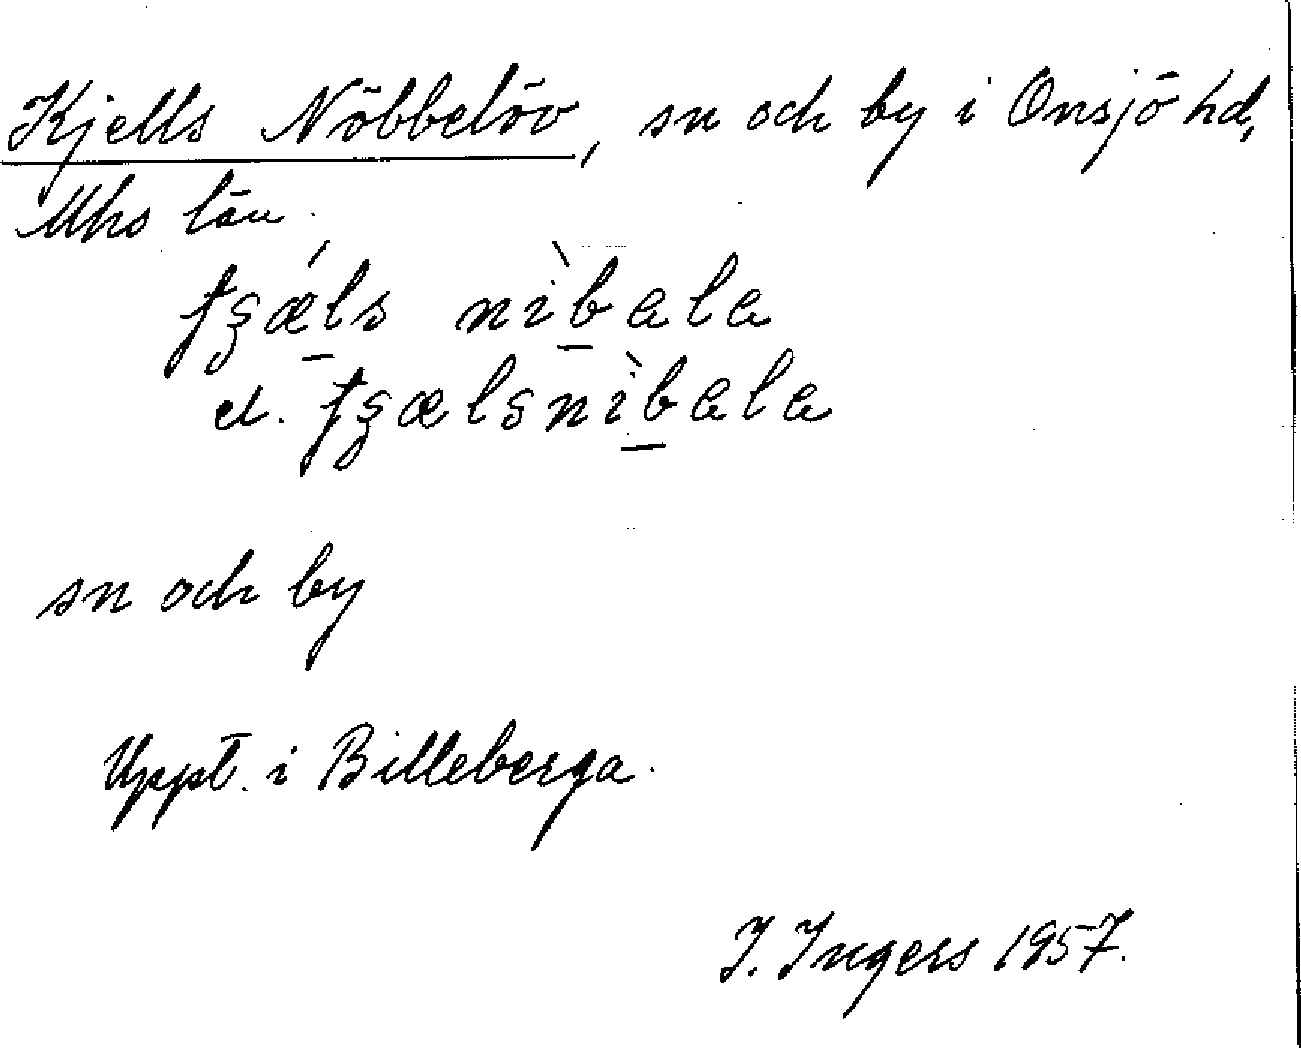 Kjells Nöbbelöv, sn och by i Onsjö hd,
Mhs län.
tʂǽls nìbala
el. tʂælsnìbala
sn och by
Uppt. i Billeberga.
I. Ingers 1957.